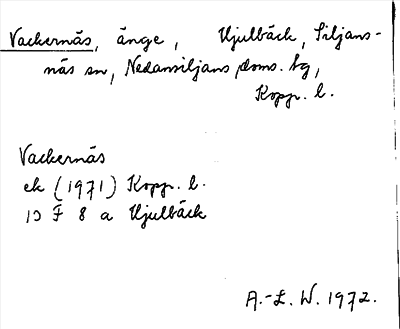 Vackernäs, änge, Hjulbäck, Siljans-
näs sn, Nedansiljans doms. hg,
Kopp. l.
Vackernäs
ek (1971) Kopp. l.
13 F 8 a Hjulbäck
A.-L. W. 1972.